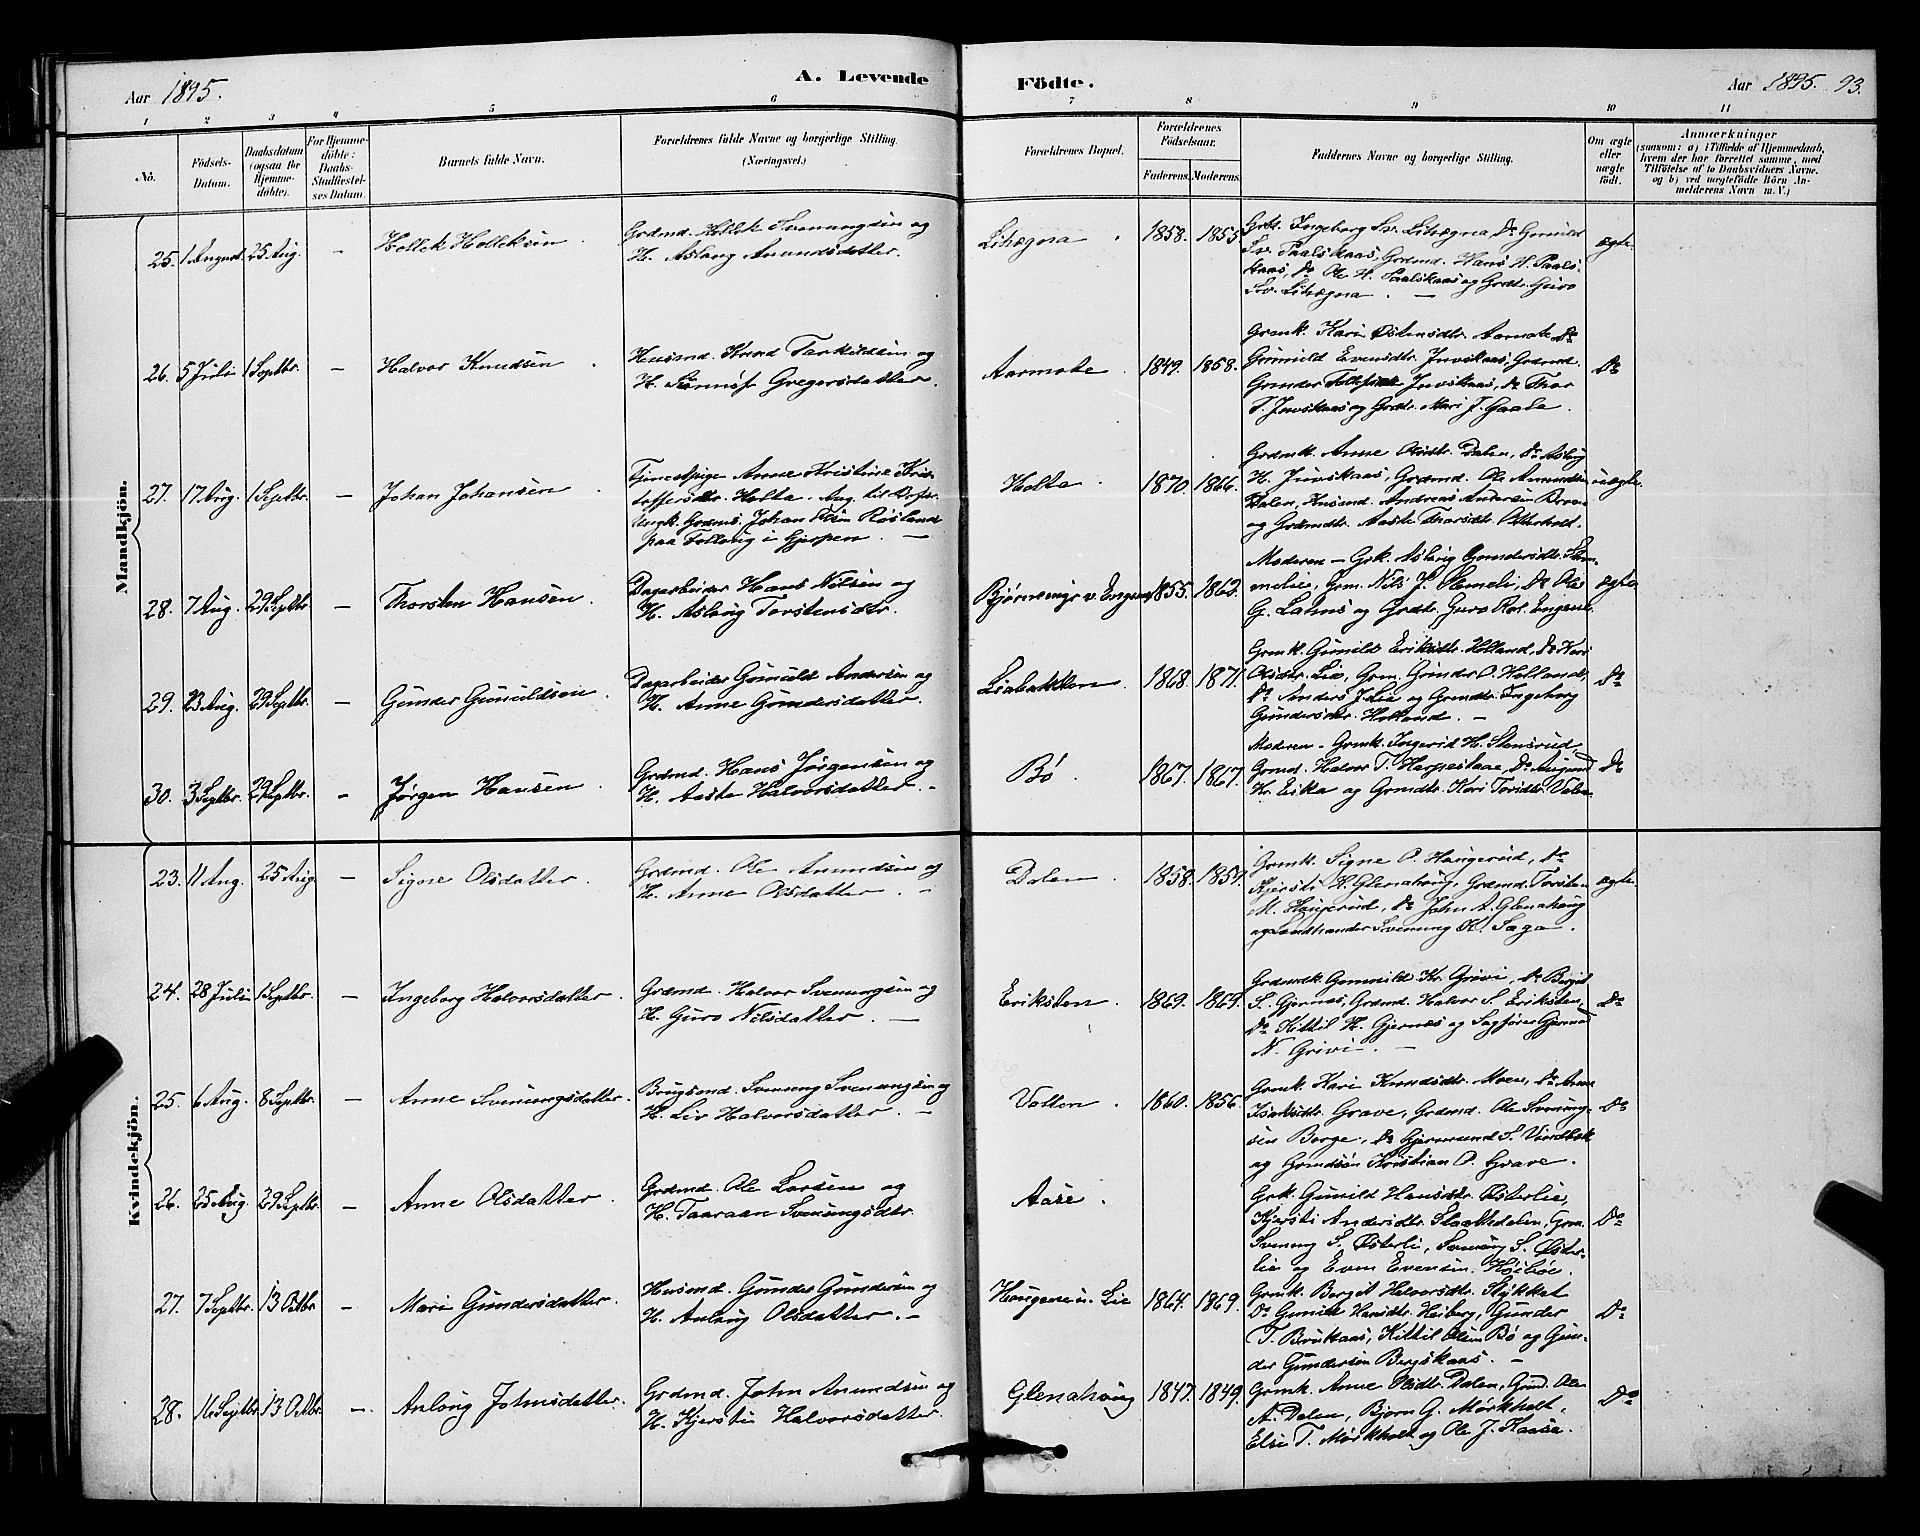 Aar 1895.
A. Levende
Födte.
Aar 1895. 93.
1 2 3 4 5 6 7 8 9 10 11
No.
Födsels-
Datum.
Daabsdatum
(ogsaa for
Hjemme-
döbte).
For Hjemme-
döbte:
Daabs-
Stadfæstel-
ses Datum.
Barnets fulde Navn.
Forældrenes fulde Navne og borgerlige Stilling.
(Næringsvei.)
Forældrenes Bopæl.
Forældrenes
Födselsaar.
Faderens. Moderens.
Faddernes Navne og borgerlige Stilling.
Om ægte
eller
uægte
födt.
Anmærkninger
(saasom: a) i Tilfælde af Hjemmedaab,
hvem der har forrettet samme, med
Tilföielse af to Daabsvidners Navne,
og b) ved uægtefödte Börn An-
melderens Navn m. V.)
Mandkjön.
25. 1 August 25 Aug. — Hellek Helleksen
Grdmd. Hellek Svenungsen og
H. Aslaug Amundsdatter.
Lihægna 1858. 1855.
Grk. Ingeborg Sv. Lihægna, Do Gunild
Sv. Paalskaas, Grdmd. Hans H. Paals-
kaas, Do Ole H. Paalskaas og Grdtr. Guro
Sv. Lihægna. —
ægte
26. 5 Juli 1 Septbr. — Halvor Knudsen
Husmd. Knud Tarkildsen og
H. Gregersdatter.
Aarmote. 1849. 1858.
Grmk. Kari Østensdtr. Aarmote, Do
Gunnild Evensdtr. Juvskaas, Grdmd.
Gunder Juvskaas, Do Thor
T. Juvskaas og Grdtr. Mari J. Gaala.
Do
27. 17 Aug. 1 Septbr. — Johan Johansen
Tjenestpige Anne Kristine Kris-
toffersdtr. Holta. Ang. til
Ungk. Grdms. Johan Røsland
paa i Gjerpen. —
Holta. 1870. 1866.
Grdmk. Anne Olsdtr. Dalen, Do Aslaug
H. Juvskaas, Grdmd. Ole Amundsen
Dalen, Husmd. Andreas Andersen
og Grdmdtr. Aaste Thorsdtr. Otterholt.
uægte
28. 7 Aug. 29 Septbr. — Thorsten Hansen
Dagarbeider Hans Nilsen og
H. Aslaug Torstensdtr.
v. Engene 1855. 1862.
Moderen — Grk. Aslaug Gundersdtr. Slem-
melie, Grm. Nils J. Slemeli, Do Ole
G. og Grdtr. Guro Engene.
ægte
29. 23 Aug. 29 Septbr. — Gunder Gunuldsen
Dagarbeider Gunuld Andersen og
H. Anne Gundersdatter.
Liabakken 1868. 1871.
Grmk. Gunild Eriksdtr. Holland, Do Kari
Olsdtr. Lie, Grm. Gunder O. Holland,
Do Anders J. Lie og Grmdtr. Ingeborg
Gundersdtr. Holland. —
Do
30. 3 Septbr. 29 Septbr. — Jørgen Hansen
Grdmd. Hans Jørgensen og
H. Aaste Halvorsdatter. —
Bø. 1867. 1867.
Moderen — Grmk. Ingerid H. Stensrud,
Grmd. Halvor T. Harpestaae, Do
Kr. Eika og Grmdtr. Kari
Do
Kvindekjön.
23. 11 Aug. 25 Aug. — Signe Olsdatter.
Grdmd. Ole Amundsen og
H. Anne Olsdatter. —
Dalen. 1858. 1857.
Grmk. Signe O. Haugerud, Do
Kjersti H. Glenahaug, Grdmd. Torsten
M. Haugerud, Do John A. Glenahaug
og Landhandler Svenung K. Saga.
ægte
24. 28 Juli 1 Septbr. — Ingeborg Halvorsdatter.
Grdmd. Halvor Svenungsen og
H. Guro Nilsdatter. —
Eriksten. 1869. 1869.
Grdmk. Gunnild Kr. Grivi, Do Bergit
S. Gjernes, Grdmd. Halvor S. Eriksten,
Do Kittil H. Gjernæs og Sagfører
N. Grivi. —
Do
25. 6 Aug. 8 Septbr. — Anne Svenungsdatter.
Brugsmd. Svenung Svenungsen og
H. Liv Halvorsdatter. —
Vatten. 1860. 1856.
Grmk. Kari Knudsdtr. Moen, Do Anne
Isaksdtr. Grave, Grdmd. Ole Svenung-
sen Borge, Do Gjermund S.
og Grmdsøn Kristian O. Grave.
Do
26. 25 Aug. 29 Septbr. — Anne Olsdatter.
Grdmd. Ole Larsen og
H. Taaraan Svenungsdtr.
Aase.
Grk. Gunild Hansdtr. Østerlie,
Kjersti Andersdtr. Slaattedalen, Grm.
Svenung S. Østerli, Svenung S. Øster-
lie og Even Evensen Høibøe.
Do
27. 7 Septbr. 13 Octbr. — Mari Gundersdatter.
Husmd. Gunder Gundersen og
H. Anlaug Olsdatter. —
Haugene u. Lie 1864. 1869.
Grmk. Bergit Halvorsdtr. Stykket
Do Gunild Hansdtr. Heiberg, Gunder
T. Brukaas, Kittil Olsen Bø og Gun-
der Gundersen Bergskaas. —
Do
28. 16 Septbr. 13 Octbr. — Anlaug Johnsdatter.
Grdmd. John Amundsen og
H. Kjersti Halvorsdatter.
Glenahaug 1847. 1849.
Grmk. Anne Olsdtr. Dalen, Grmd. Ole
A. Dalen, Bjørn G. Mørkholt,
Else T. Mørkholt og Ole J. Kaasa.
Do